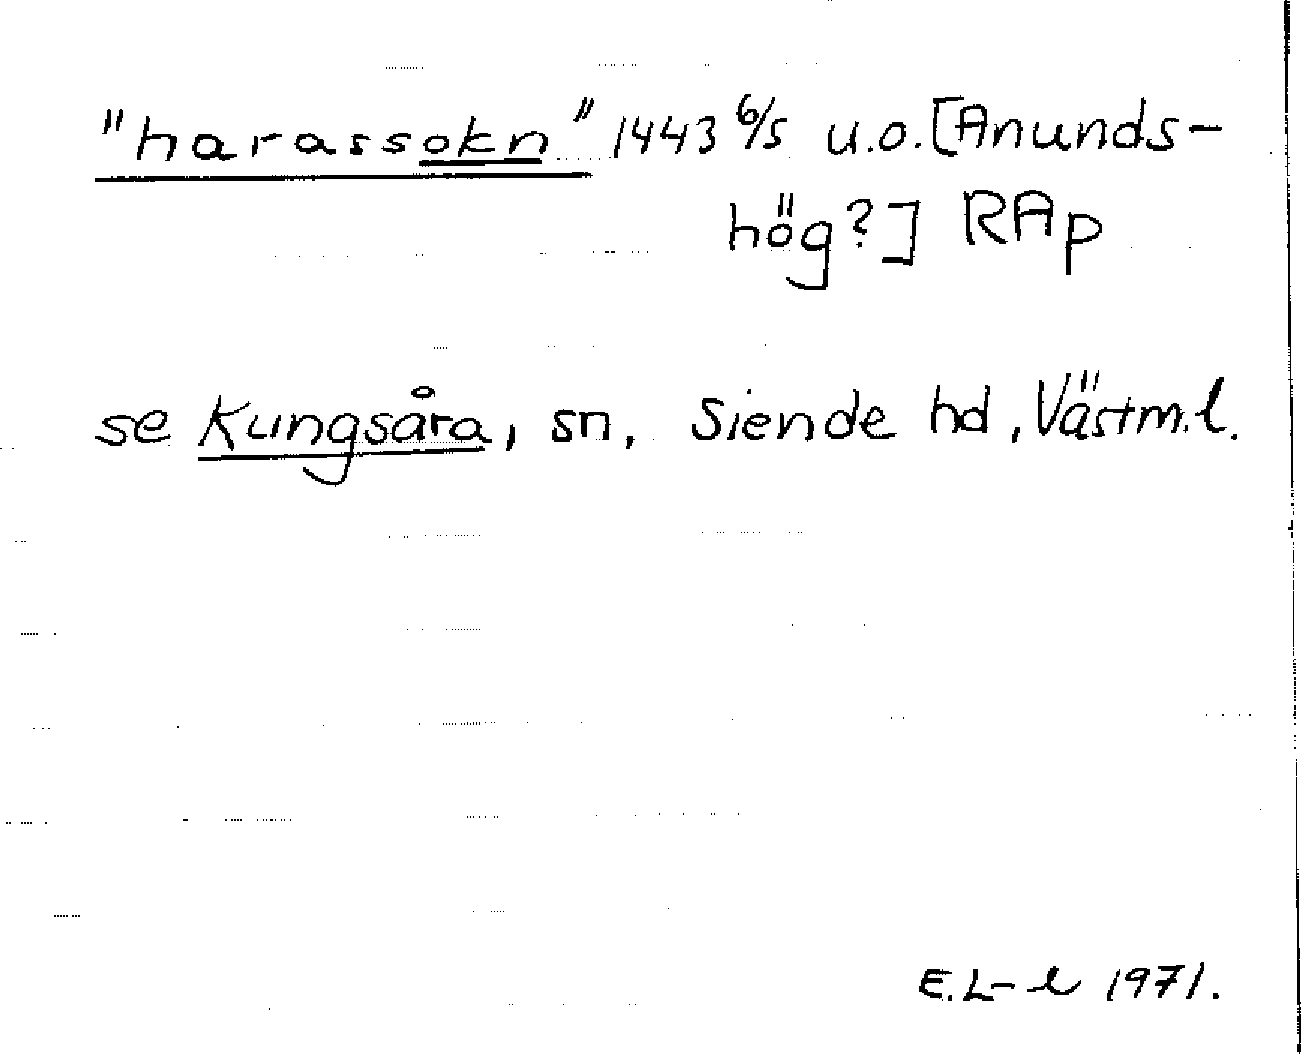 "harassokn" 1443 6/5 u.o. [Anunds-
hög?] RAp
se Kungsåra, sn, Siende hd, Västm.l.
E.L-l 1971.